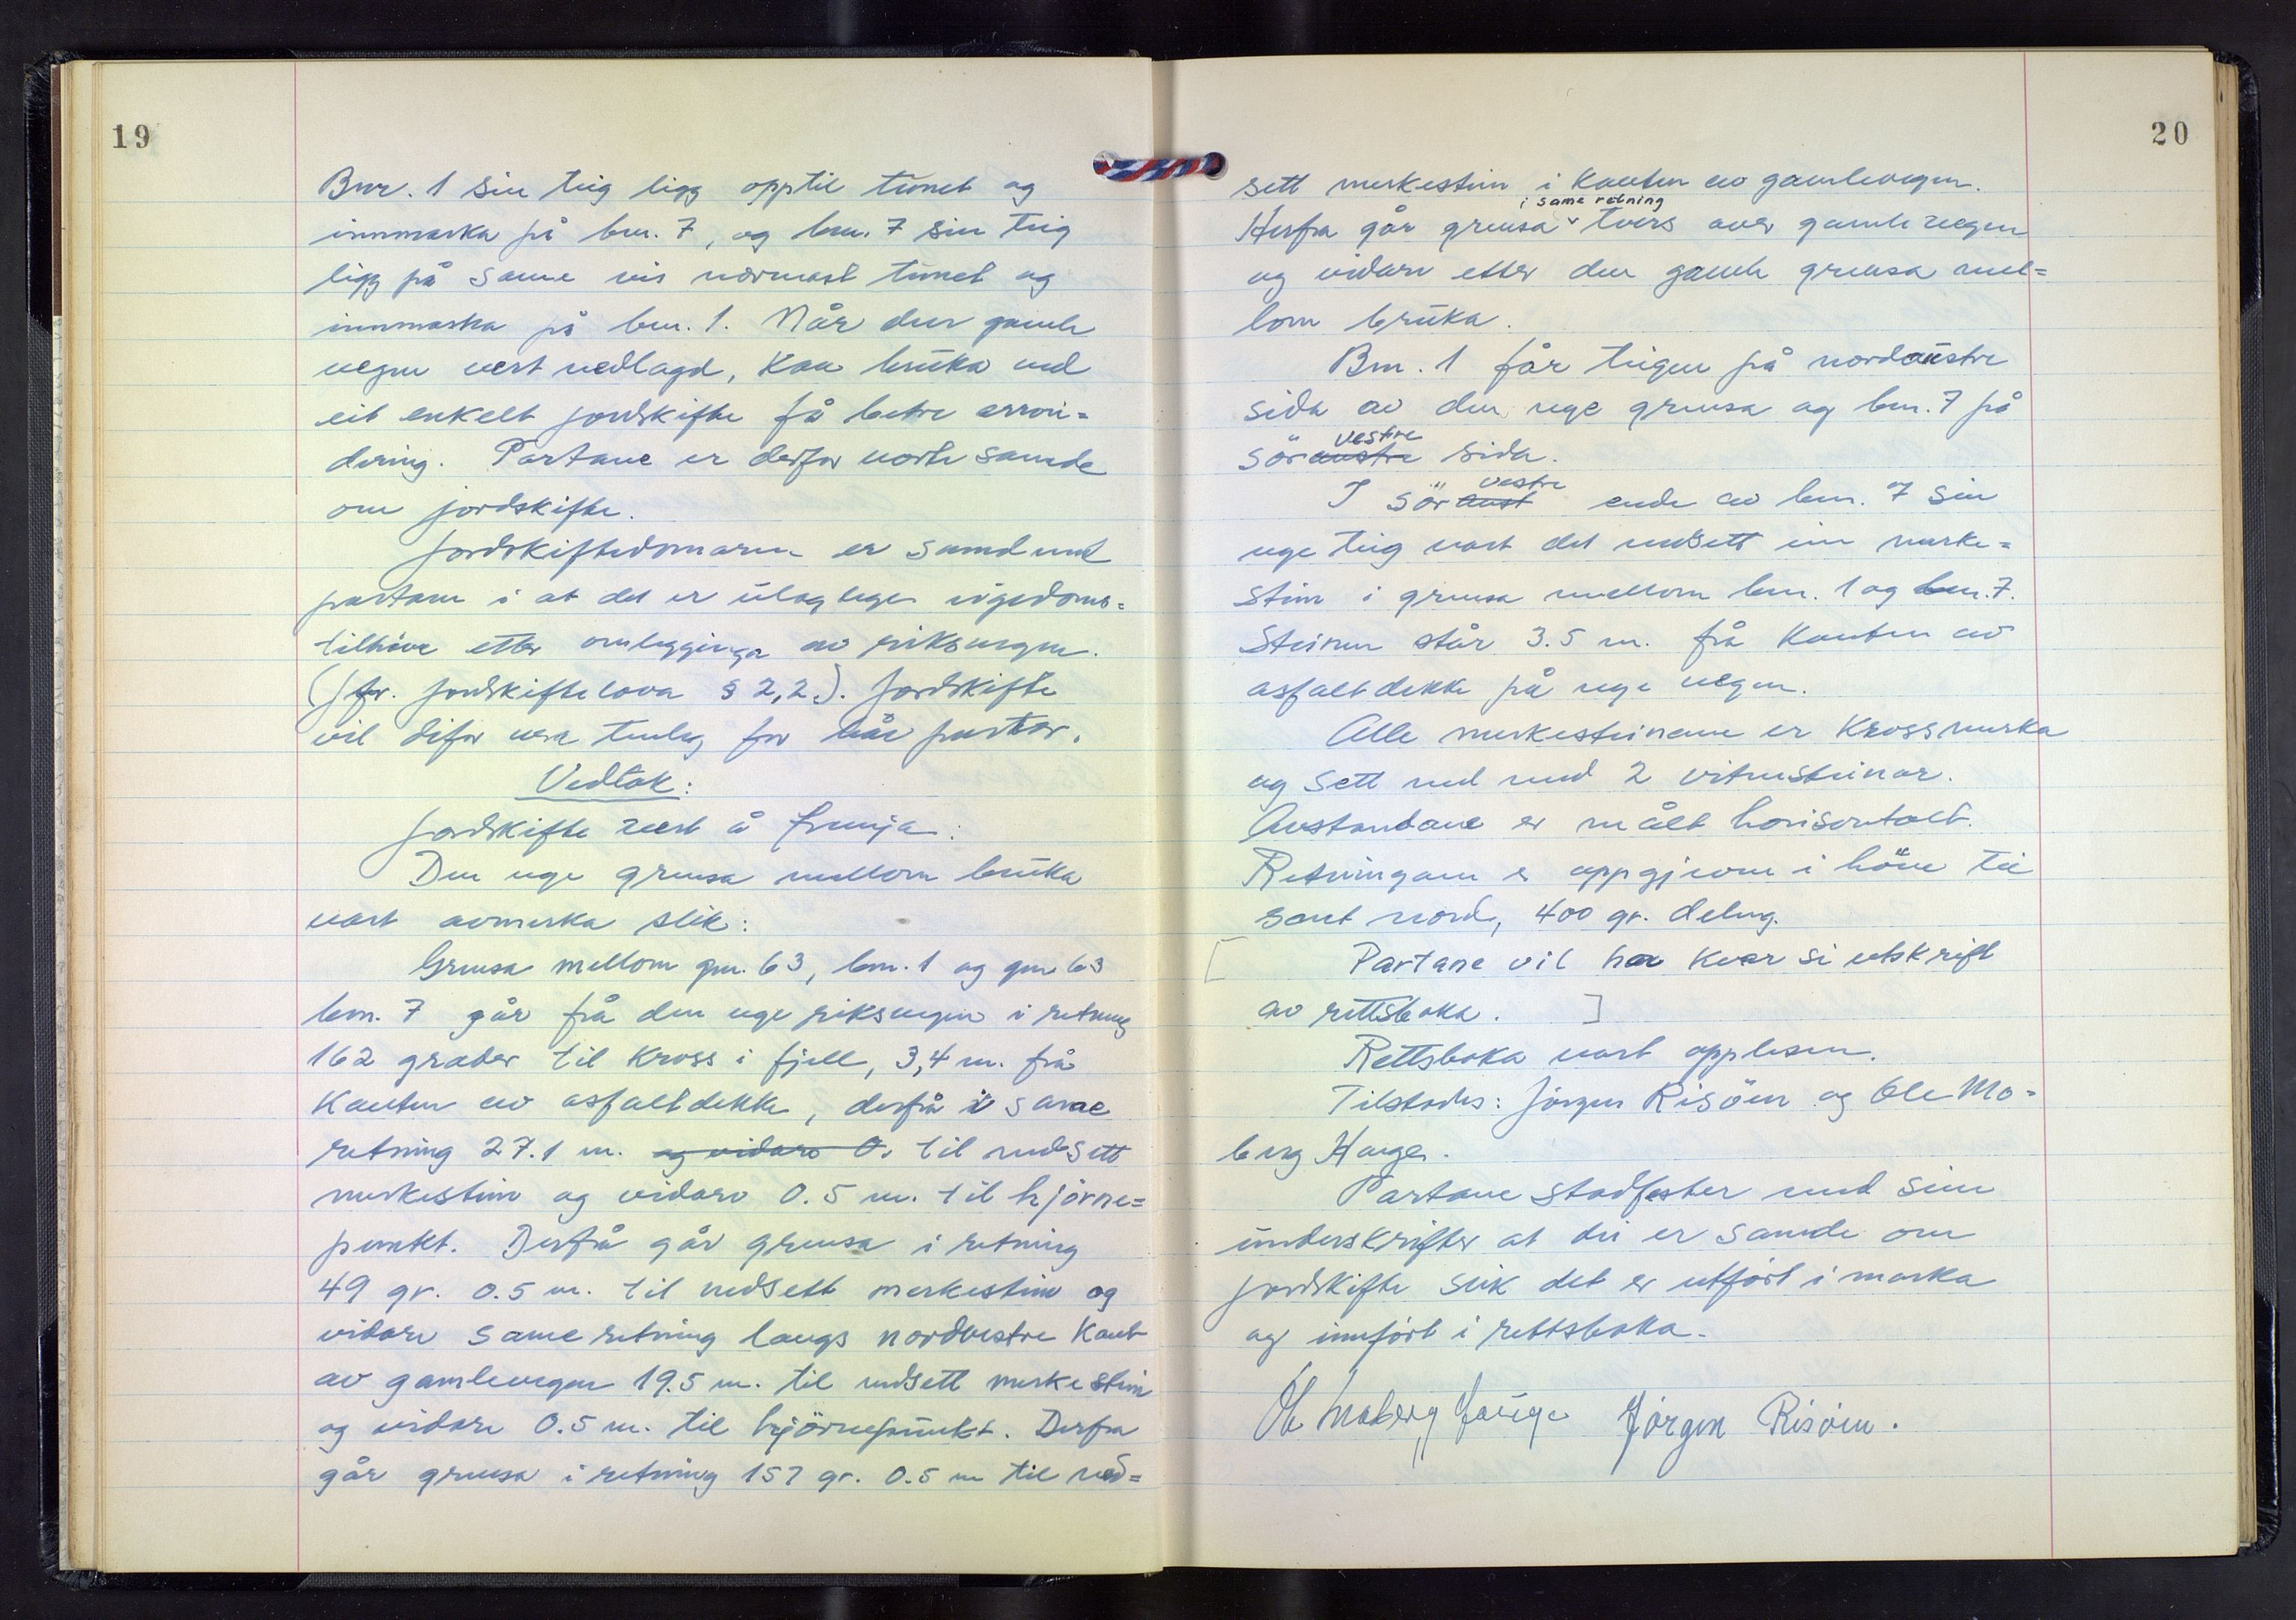 19
Bnr. 1 sin teig ligg opptil tunet og
innmarka på bnr. 7, og bnr. 7 sin teig
ligg på same vis nærmast tunet og
innmarka på bnr. 1. Når den gamle
vegen vert nedlagd, kan bruka ved
eit enkelt jordskifte få betre arron=
dering. Partane er derfor vorte samde
om jordskifte.
Jordskiftedomaren er samd med
partane i at det er ulaglege eigedoms=
tilhöve etter omlegginga av riksvegen.
(Jfr. jordskiftelova § 2,2.). Jordskifte
vil difor vera tenleg for båe partar.
Vedtak:
Jordskifte vert å fremja:
Den nye grensa mellom bruka
vart avmerka slik:
Grensa mellom gnr. 63, bnr. 1 og gnr 63
bnr. 7 går frå den nye riksvegen i retning
162 grader til kross i fjell, 3,4 m. frå
kanten av asfaltdekke, derfrå i same
retning 27.1 m. og vidare 0. til nedsett
merkestein og vidare 0.5 m. til hjörne=
punkt. Derfrå går grensa i retning
49 gr. 0.5 m. til nedsett merkestein og
vidare same retning langs nordvestre kant
av gamlevegen 19.5 m. til nedsett merkestein
og vidare 0.5 m. til hjörnepunkt. Derfra
går grensa i retning 157 gr. 0.5 m til ned=
20
sett merkestein i kanten av gamlevegen.
i same retning
Herfra går grensa tvers over gamlevegen
og vidare etter den gamle grensa mel=
lom bruka.
Bnr. 1 får teigen på nordaustre
sida av den nye grensa og bnr. 7 på
vestre
söraustre sida.
vestre
I söraust ende av bnr. 7 sin
nye teig vart det nedsett ein merke=
stein i grensa mellom bnr. 1 og bnr. 7.
Steinen står 3.5 m. frå kanten av
asfaltdekke på nye vegen.
Alle merkesteinane er krossmerka
og sett ned med 2 vitnesteinar.
Avstandane er målt horisontalt.
Retningane er oppgjevne i höve til
sant nord, 400 gr. deling.
[ Partane vil ha kvar si utskrift
av rettsboka. ]
Rettsboka vart opplesen.
Tilstades: Jörgen Risöen og Ole Mo=
berg Hauge.
Partane stadfester med sine
underskrifter at dei er samde om
jordskifte slik det er utfört i marka
og innfört i rettsboka.
Ole Moberg Hauge Jörgen Risöen.